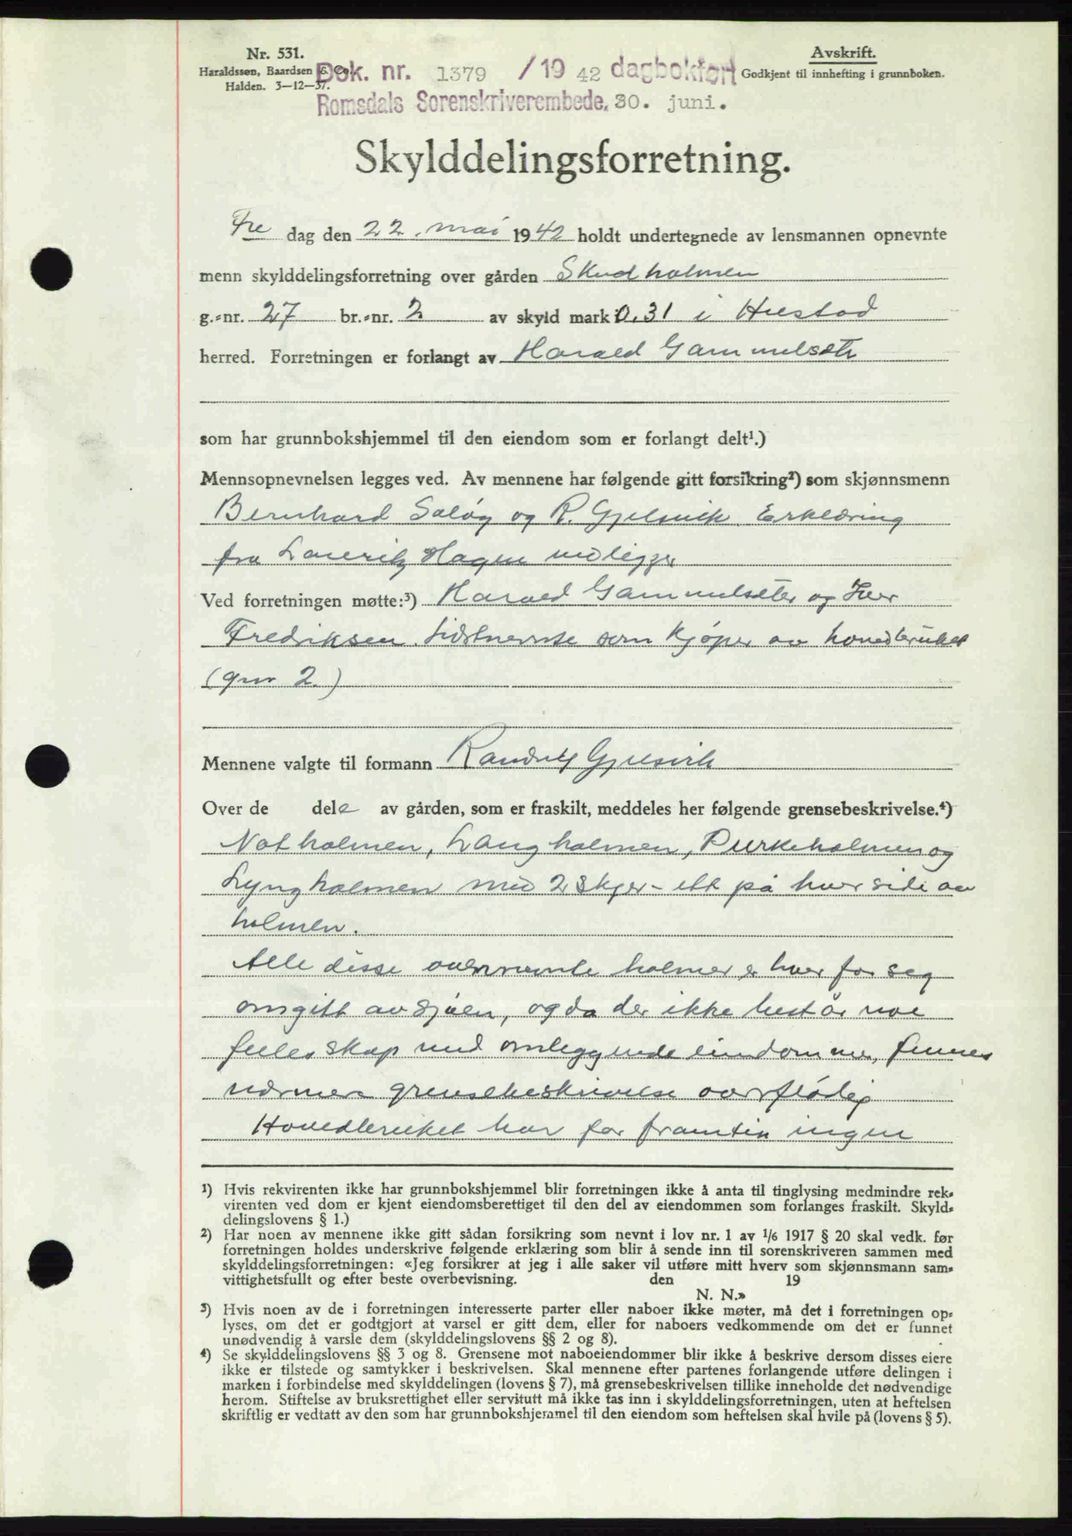 Nr. 531.
Haraldssen, Baardsen & Co.
Halden. 3-12-37.
Dok. nr. 1379 /19 42 dagbokført
Romsdals Sorenskriverembede. 30. juni.
Avskrift.
Godkjent til innhefting i grunnboken.
Skylddelingsforretning.
Fre dag den 22. mai 1942 holdt undertegnede av lensmannen opnevnte
menn skylddelingsforretning over gården Skudholmen
g.-nr. 27 br.-nr. 2 av skyld mark 0,31 i Hustad
herred. Forretningen er forlangt av Harald Gammelsæter
som har grunnbokshjemmel til den eiendom som er forlangt delt¹.)
Mennsopnevnelsen legges ved. Av mennene har følgende gitt forsikring²) som skjønnsmenn
Bernhard Saløy og R. Gjelsvik. Erklæring
fra Lauritz Hagen vedligger
Ved forretningen møtte:³) Harald Gammelsæter og Iver
Fredriksen. Sistnevnte som kjøper av hovedbruket
(gnr 2.)
Mennene valgte til formann Randulf Gjelsvik
Over de dele av gården, som er fraskilt, meddeles her følgende grensebeskrivelse.⁴)
Notholmen, Langholmen, Purkeholmen og
Lyngholmen med 2 skjer - ett på hver side av
holmen.
Alle disse ovennevnte holmer er hver for seg
omgitt av sjøen, og da der ikke består noe
felleskap med omliggende eiendommer, finnes
nærmere grensebeskrivelse overflødig
Hovedbruket har for framtin ingen
¹) Hvis rekvirenten ikke har grunnbokshjemmel blir forretningen ikke å anta til tinglysing medmindre rek-
virenten ved dom er kjent eiendomsberettiget til den del av eiendommen som forlanges fraskilt. Skyld-
delingslovens § 1.)
²) Har noen av mennene ikke gitt sådan forsikring som nevnt i lov nr. 1 av 1/6 1917 § 20 skal vedk. før
forretningen holdes underskrive følgende erklæring som blir å sende inn til sorenskriveren sammen med
skylddelingsforretningen: «Jeg forsikrer at jeg i alle saker vil utføre mitt hverv som skjønnsmann sam-
vittighetsfullt og efter beste overbevisning. den 19
N. N.»
³) Hvis noen av de i forretningen interesserte parter eller naboer ikke møter, må det i forretningen op-
lyses, om det er godtgjort at varsel er gitt dem, eller for naboers vedkommende om det er funnet
unødvendig å varsle dem (skylddelingslovens §§ 2 og 8).
⁴) Se skylddelingslovens §§ 3 og 8. Grensene mot naboeiendommer blir ikke å beskrive dersom disses eiere
ikke er tilstede og samtykker i beskrivelsen. Skal mennene efter partenes forlangende utføre delingen i
marken i forbindelse med skylddelingen (lovens § 7), må grensebeskrivelsen tillike inneholde det nødvendige
herom. Stiftelse av bruksrettighet eller servitutt må ikke tas inn i skylddelingsforretningen, uten at heftelsen
skriftlig er vedtatt av den som har grunnbokshjemmel til den eiendom som heftelsen skal hvile på (lovens § 5).